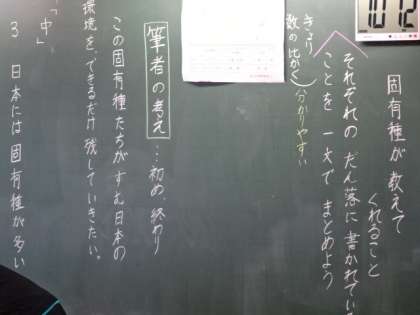 固有種が教えて
くれること
それぞれの だん落に 書かれている
ことを 一文で まとめよう
きょり
数の比かく
分かりやすい
筆者の考え…初め、終わり
この固有種たちがすむ日本の
環境を、できるだけ残していきたい。
「中」
3 日本には 固有種が多い